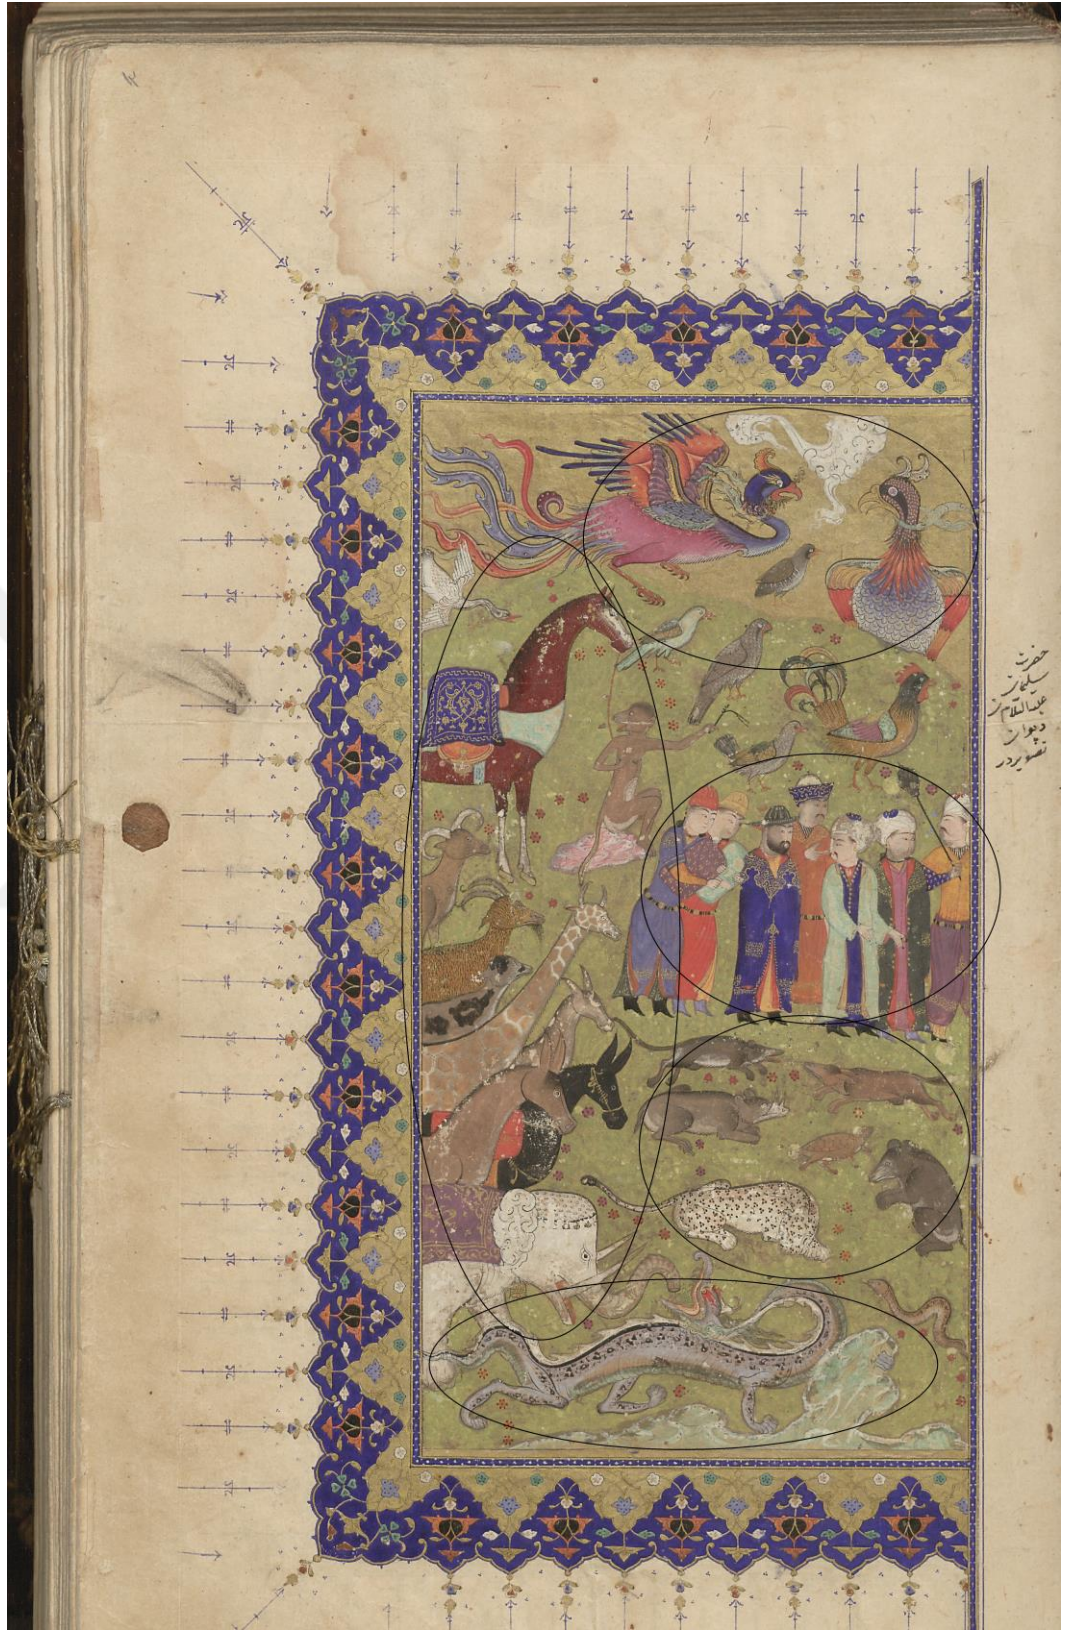 حضرت
سليمان
عليه السلام
ديوان
تصوير در